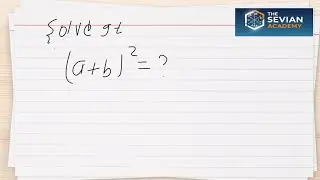 Solve gt
(a+b)²=?
THE
SEVIAN
ACADEMY